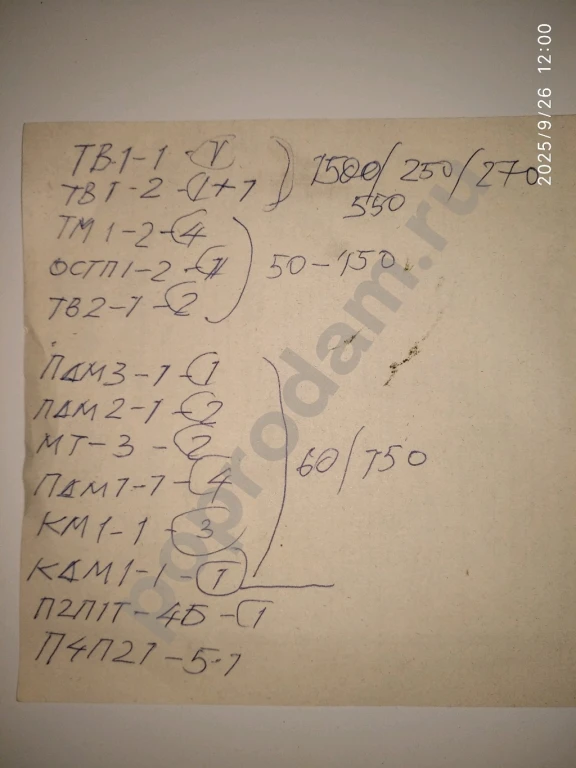 2025/9/26 12:00
ТВ1-1 - 1
ТВ1-2 - 1+1 1500/250/270
550
ТМ1-2 - 4
ОСТП1-2 - 1 50-150
ТВ2-1 - 2
ПДМ3-1 - 1
ПДМ2-1 - 2
МТ-3 - 2
ПДМ1-1 - 4 60/150
КМ1-1 - 3
КДМ1-1 - 1
П2П1Т-4Б - 1
П4П2Т-5-1
poprodam.ru